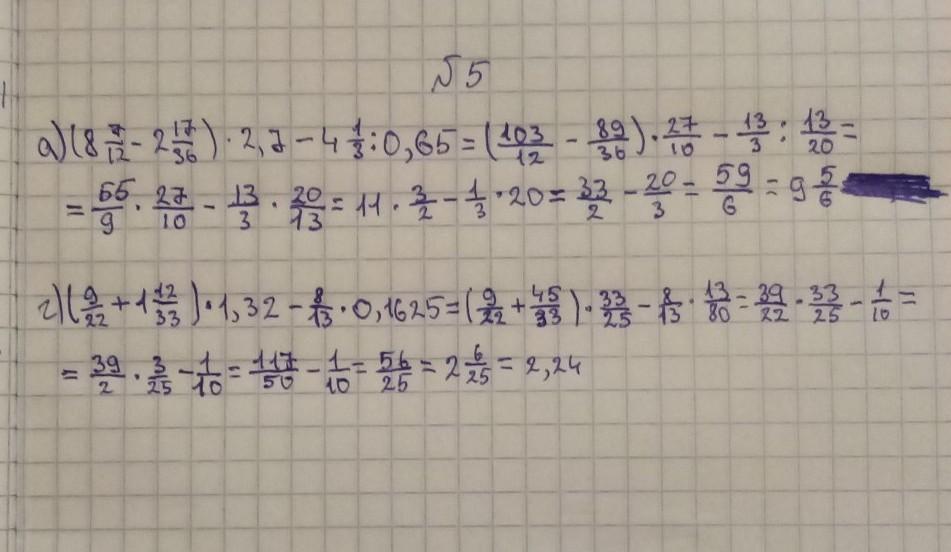 №5
а)(8 7/12 - 2 17/36) · 2,7 - 4 1/3 : 0,65 = (103/12 - 89/36) · 27/10 - 13/3 : 13/20 =
= 55/9 · 27/10 - 13/3 · 20/13 = 11 · 3/2 - 1/3 · 20 = 33/2 - 20/3 = 59/6 = 9 5/6
г)(9/22 + 1 12/33) · 1,32 - 8/13 · 0,1625 = (9/22 + 45/33) · 33/25 - 8/13 · 13/80 = 39/22 · 33/25 - 1/10 =
= 39/2 · 3/25 - 1/10 = 117/50 - 1/10 = 56/25 = 2 6/25 = 2,24